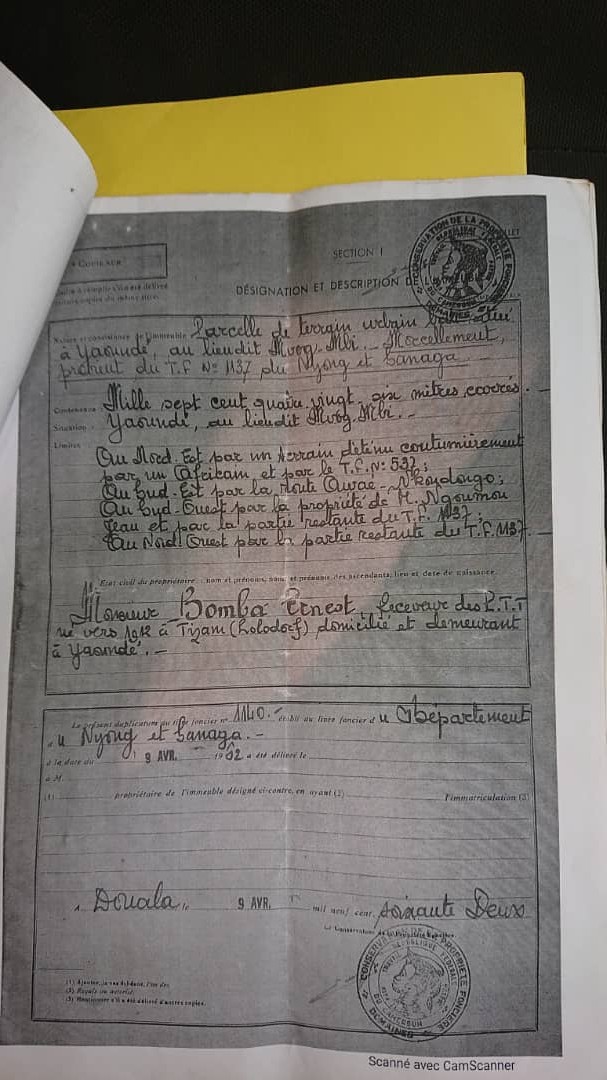 SECTION I
DÉSIGNATION ET DESCRIPTION DE
CONSERVATION DE LA PROPRIÉTÉ FONCIÈRE
DOMAINES
Nature et consistance de l'immeuble Parcelle de terrain urbain située
à Yaoundé, au lieudit Mvog-Mbi - Morcellement,
du T.F. N° 1137 du Nyong et Sanaga
Contenance : Mille sept cent quatre vingt six mètres carrés. -
Situation : Yaoundé, au lieudit Mvog. Mbi. -
Limites : Au Nord. Est par un terrain détenu coutumièrement
par un Africain et par le T.F. N° 537;
Au Sud-Est par la route Awae - Nkoldongo;
Au Sud-Ouest par la propriété de M. Ngoumou
Jean et par la partie restante du T.F. 1137;
Au Nord-Ouest par la partie restante du T.F. 1137. -
État civil du propriétaire : nom et prénoms, noms et prénoms des ascendants, lieu et date de naissance.
Monsieur Bomba Ernest, Receveur des P.T.T
né vers 1912 à (Lolodorf) domicilié et demeurant
à Yaoundé. -
Le présent duplicatum du titre foncier n° 1140. - établi au livre foncier du Département
du Nyong et Sanaga. -
à la date du 9 AVR. 1962 a été délivré le
à M.
(1) propriétaire de l'immeuble désigné ci-contre, en ayant (2) l'immatriculation (3)
A Douala le 9 AVR. mil neuf cent soixante Deux
Le Conservateur de la Propriété Foncière,
CONSERVATION DE LA PROPRIÉTÉ FONCIÈRE
DOMAINES
(2) Requis ou autorisé.
(3) Mentionner s'il a été délivré d'autres copies.
Scanné avec CamScanner